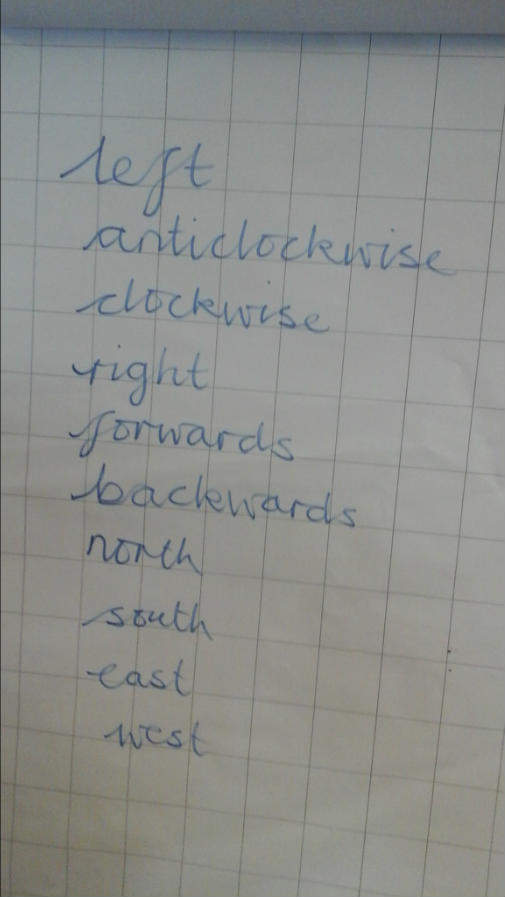 left
anticlockwise
clockwise
right
forwards
backwards
north
south
east
west